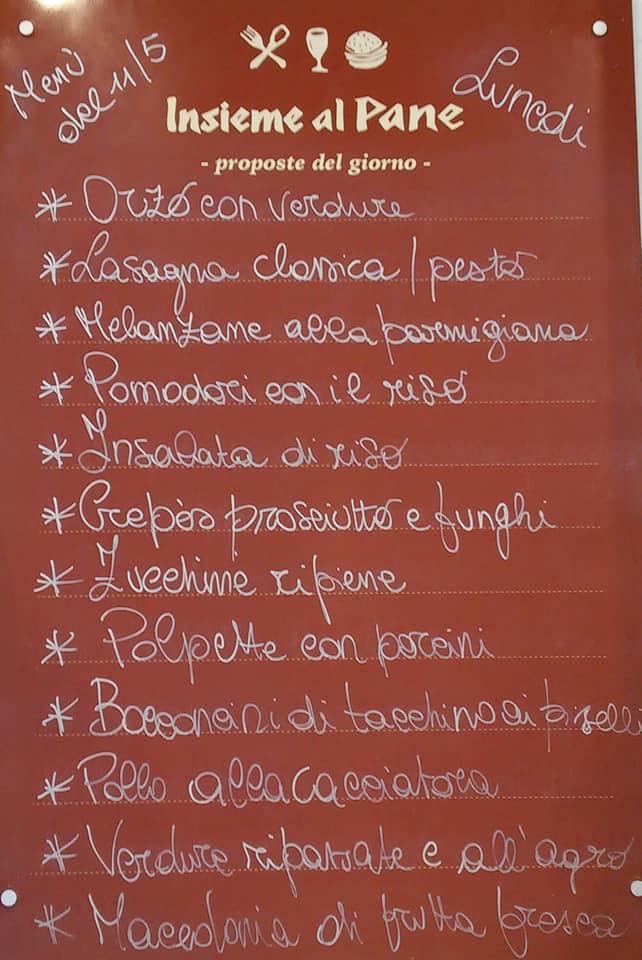 Menù
del 11/5
Lunedì
Insieme al Pane
- proposte del giorno -
* Orzo con verdure
* Lasagna classica / pesto
* Melanzane alla parmigiana
* Pomodori con il riso
* Insalata di riso
* Crepès prosciutto e funghi
* Zucchine ripiene
* Polpette con porcini
* Bocconcini di tacchino ai piselli
* Pollo alla cacciatora
* Verdure ripassate e all'agro
* Macedonia di frutta fresca